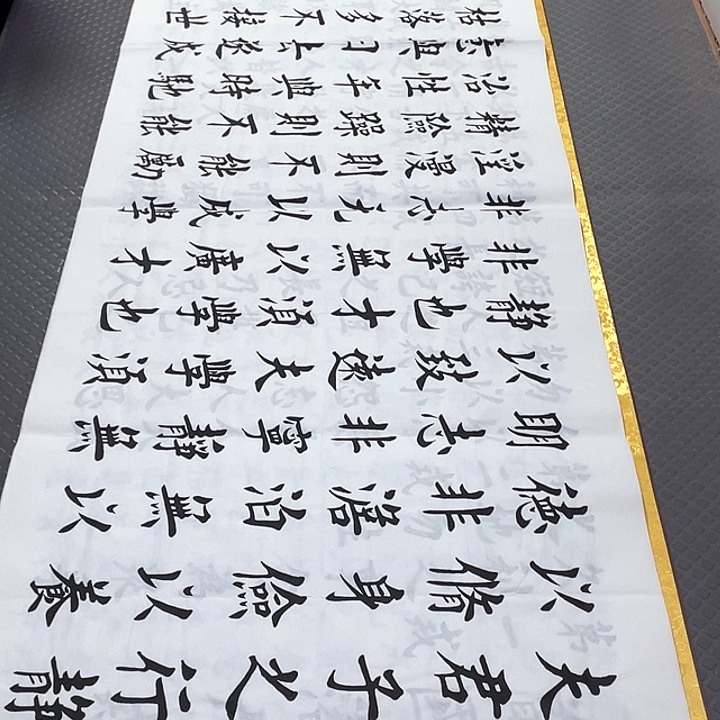 夫君子之行靜
以脩身儉以養
德非澹泊無以
明志非寧靜無
以致遠夫學須
靜也才須學也
非學無以廣才
非志无以成學
淫慢則不能勵
精險躁則不能
治性年與時馳
意與日去遂成
枯落多不接世